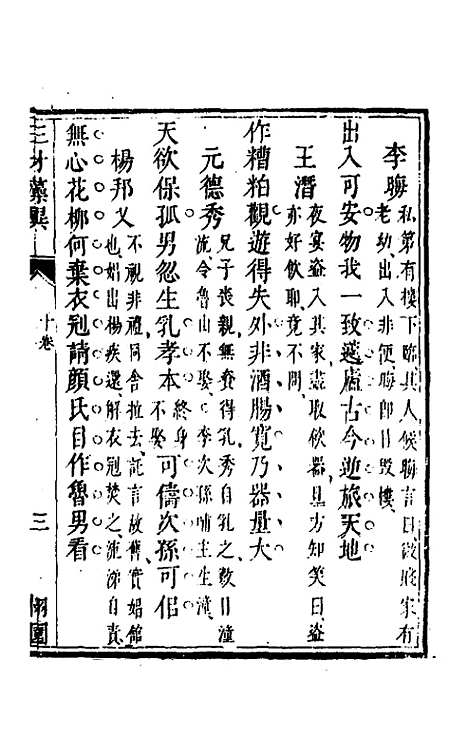 李聨 私第有樓下臨其人候聨言曰微賤家有
老幼出入非便聨即日毀樓
出入可安物我一致蘧廬古今逆旅天地
王潛 夜宴盜入其家盡取飲器具方知笑曰盜
亦好飲耶竟不問
作糟粕觀遊得失外非酒腸寛乃器量大
元德秀 兄子喪親無養得乳秀自乳之數日潼
流令魯山不娶 李次孫哺主生潼
天欲保孤男忽生乳孝本終身不娶可儔次孫可侶
楊邦乂 不視非禮同舍拉去託言故舊實娼館
也娼出楊疾還解衣冠焚之涕自責
無心花柳何棄衣冠請顔氏目作魯男看
三才藻異
十卷
三